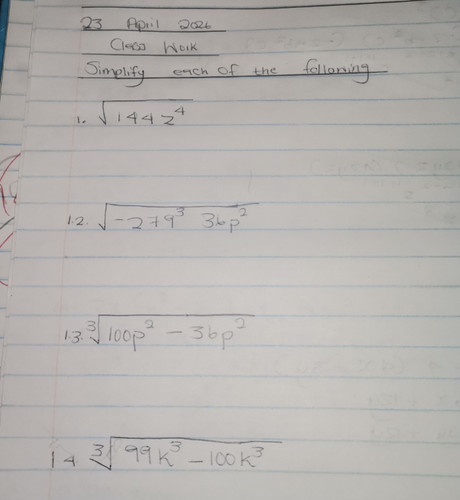 23 April 2026
Class Work
Simplify each of the following
1. √144z⁴
1.2. √-279³ 36p²
1.3. ³√100p² - 36p²
1.4 ³√99k³ - 100k³